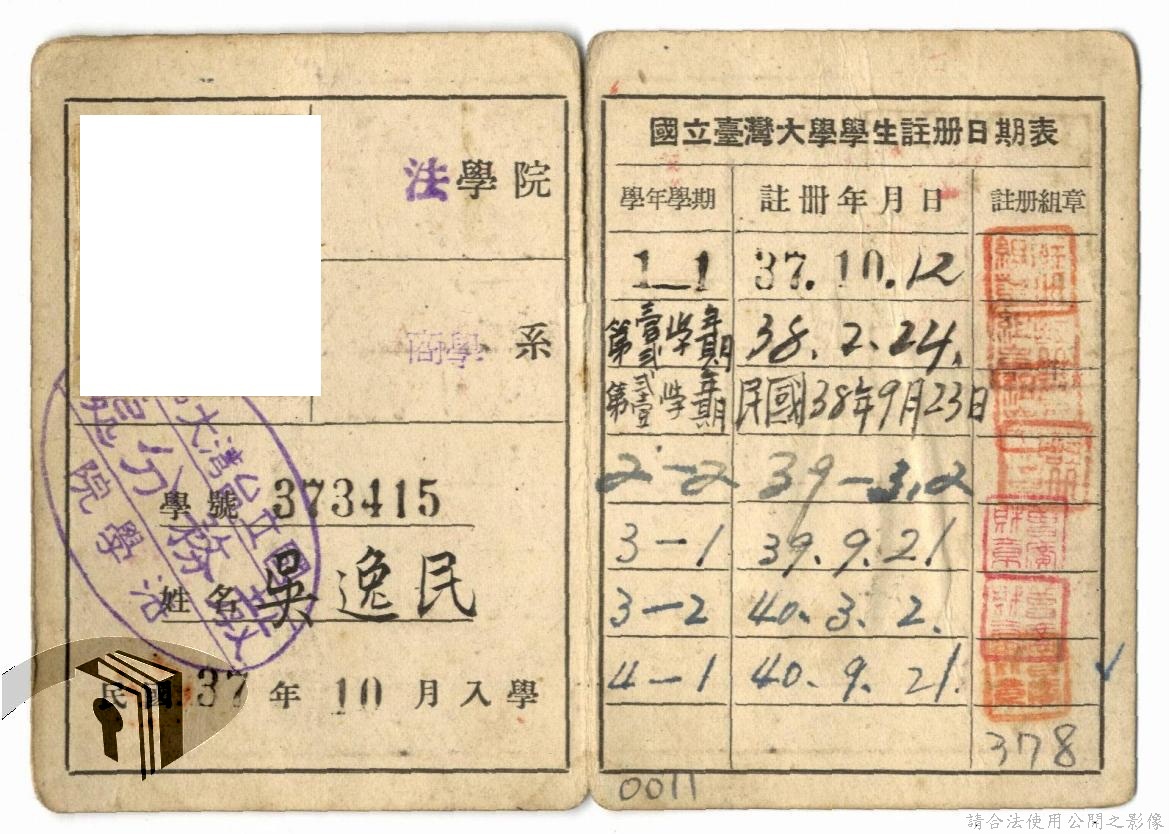 法學院
商學系
學號 373415
姓名 吳逸民
民國 37 年 10 月入學
國立臺灣大學學生註册日期表
學年學期 註冊年月日 註册組章
1—1 37.10.12
第壹學年貳學期 38.2.24.
第貳學年壹學期 民國38年9月23日
2-2 39-3.2
3-1 39.9.21
3-2 40.3.2.
4-1 40.9.21.
378
0011
請合法使用公開之影像